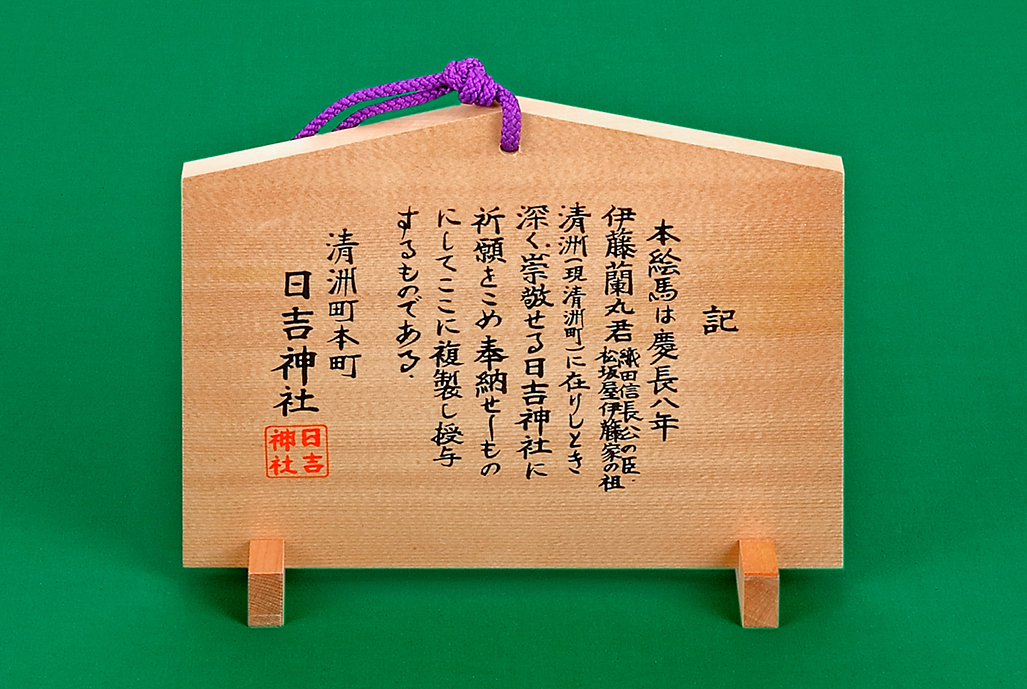 記
本絵馬は慶長八年
伊藤蘭丸君 織田信長公の臣.
松坂屋伊藤家の祖
清洲(現清洲町)に在りしとき
深く崇敬せる日吉神社に
祈願をこめ奉納せしもの
にしてここに複製し授与
するものである.
清洲町本町
日吉神社
日吉
神社